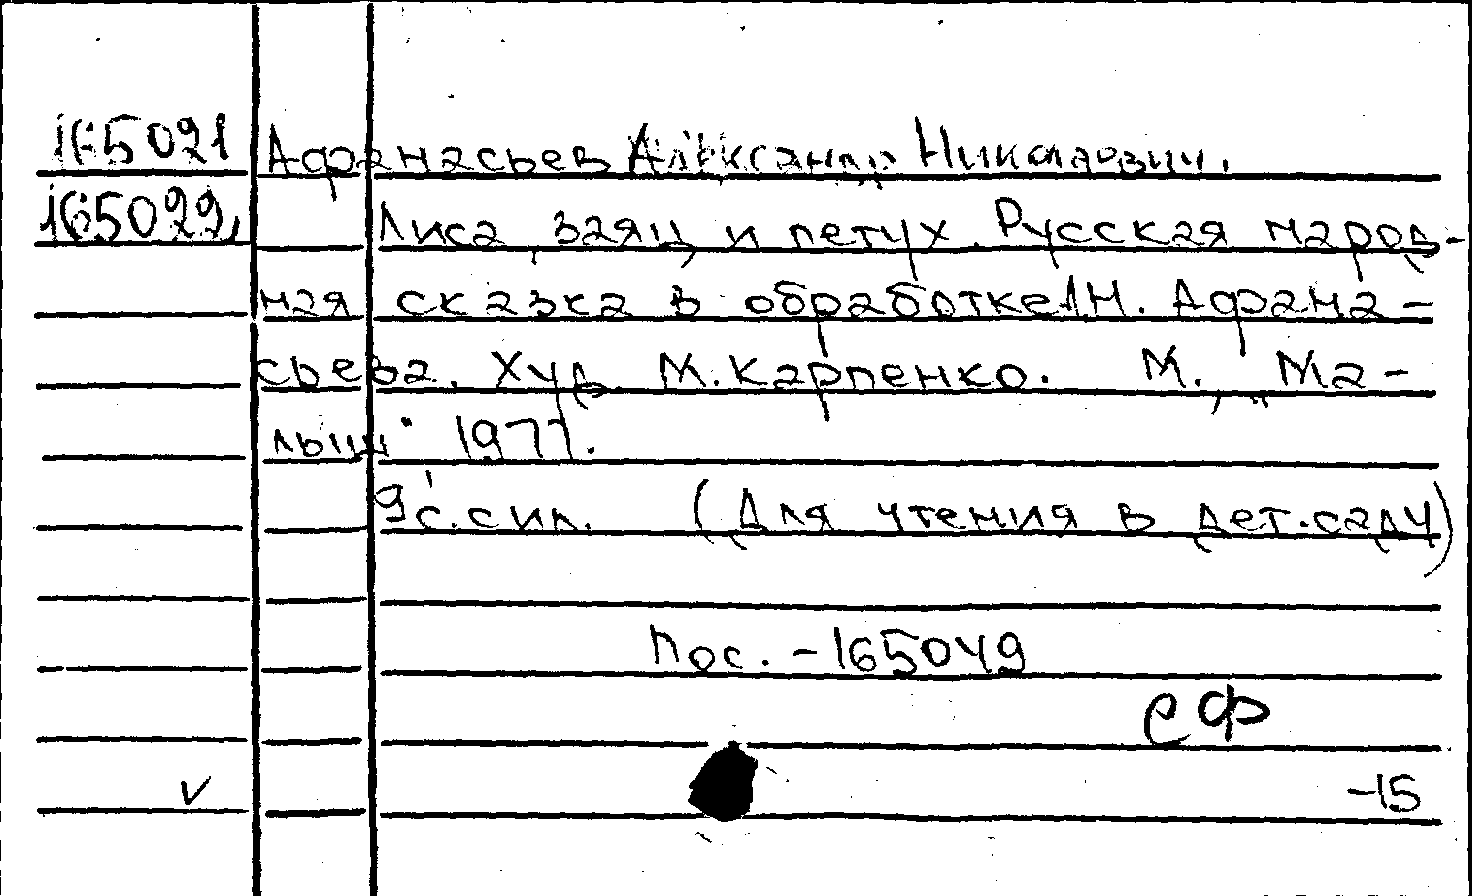 165021 Афанасьев Александр Николаевич.
165022, Лиса, заяц и петух. Русская народ-
ная сказка в обработке А.Н. Афана-
сьева. Худ. М. Карпенко. М., „Ма-
лыш" 1977.
9 с. с ил. (Для чтения в дет. саду)
Пос. - 165049
СФ
v -15